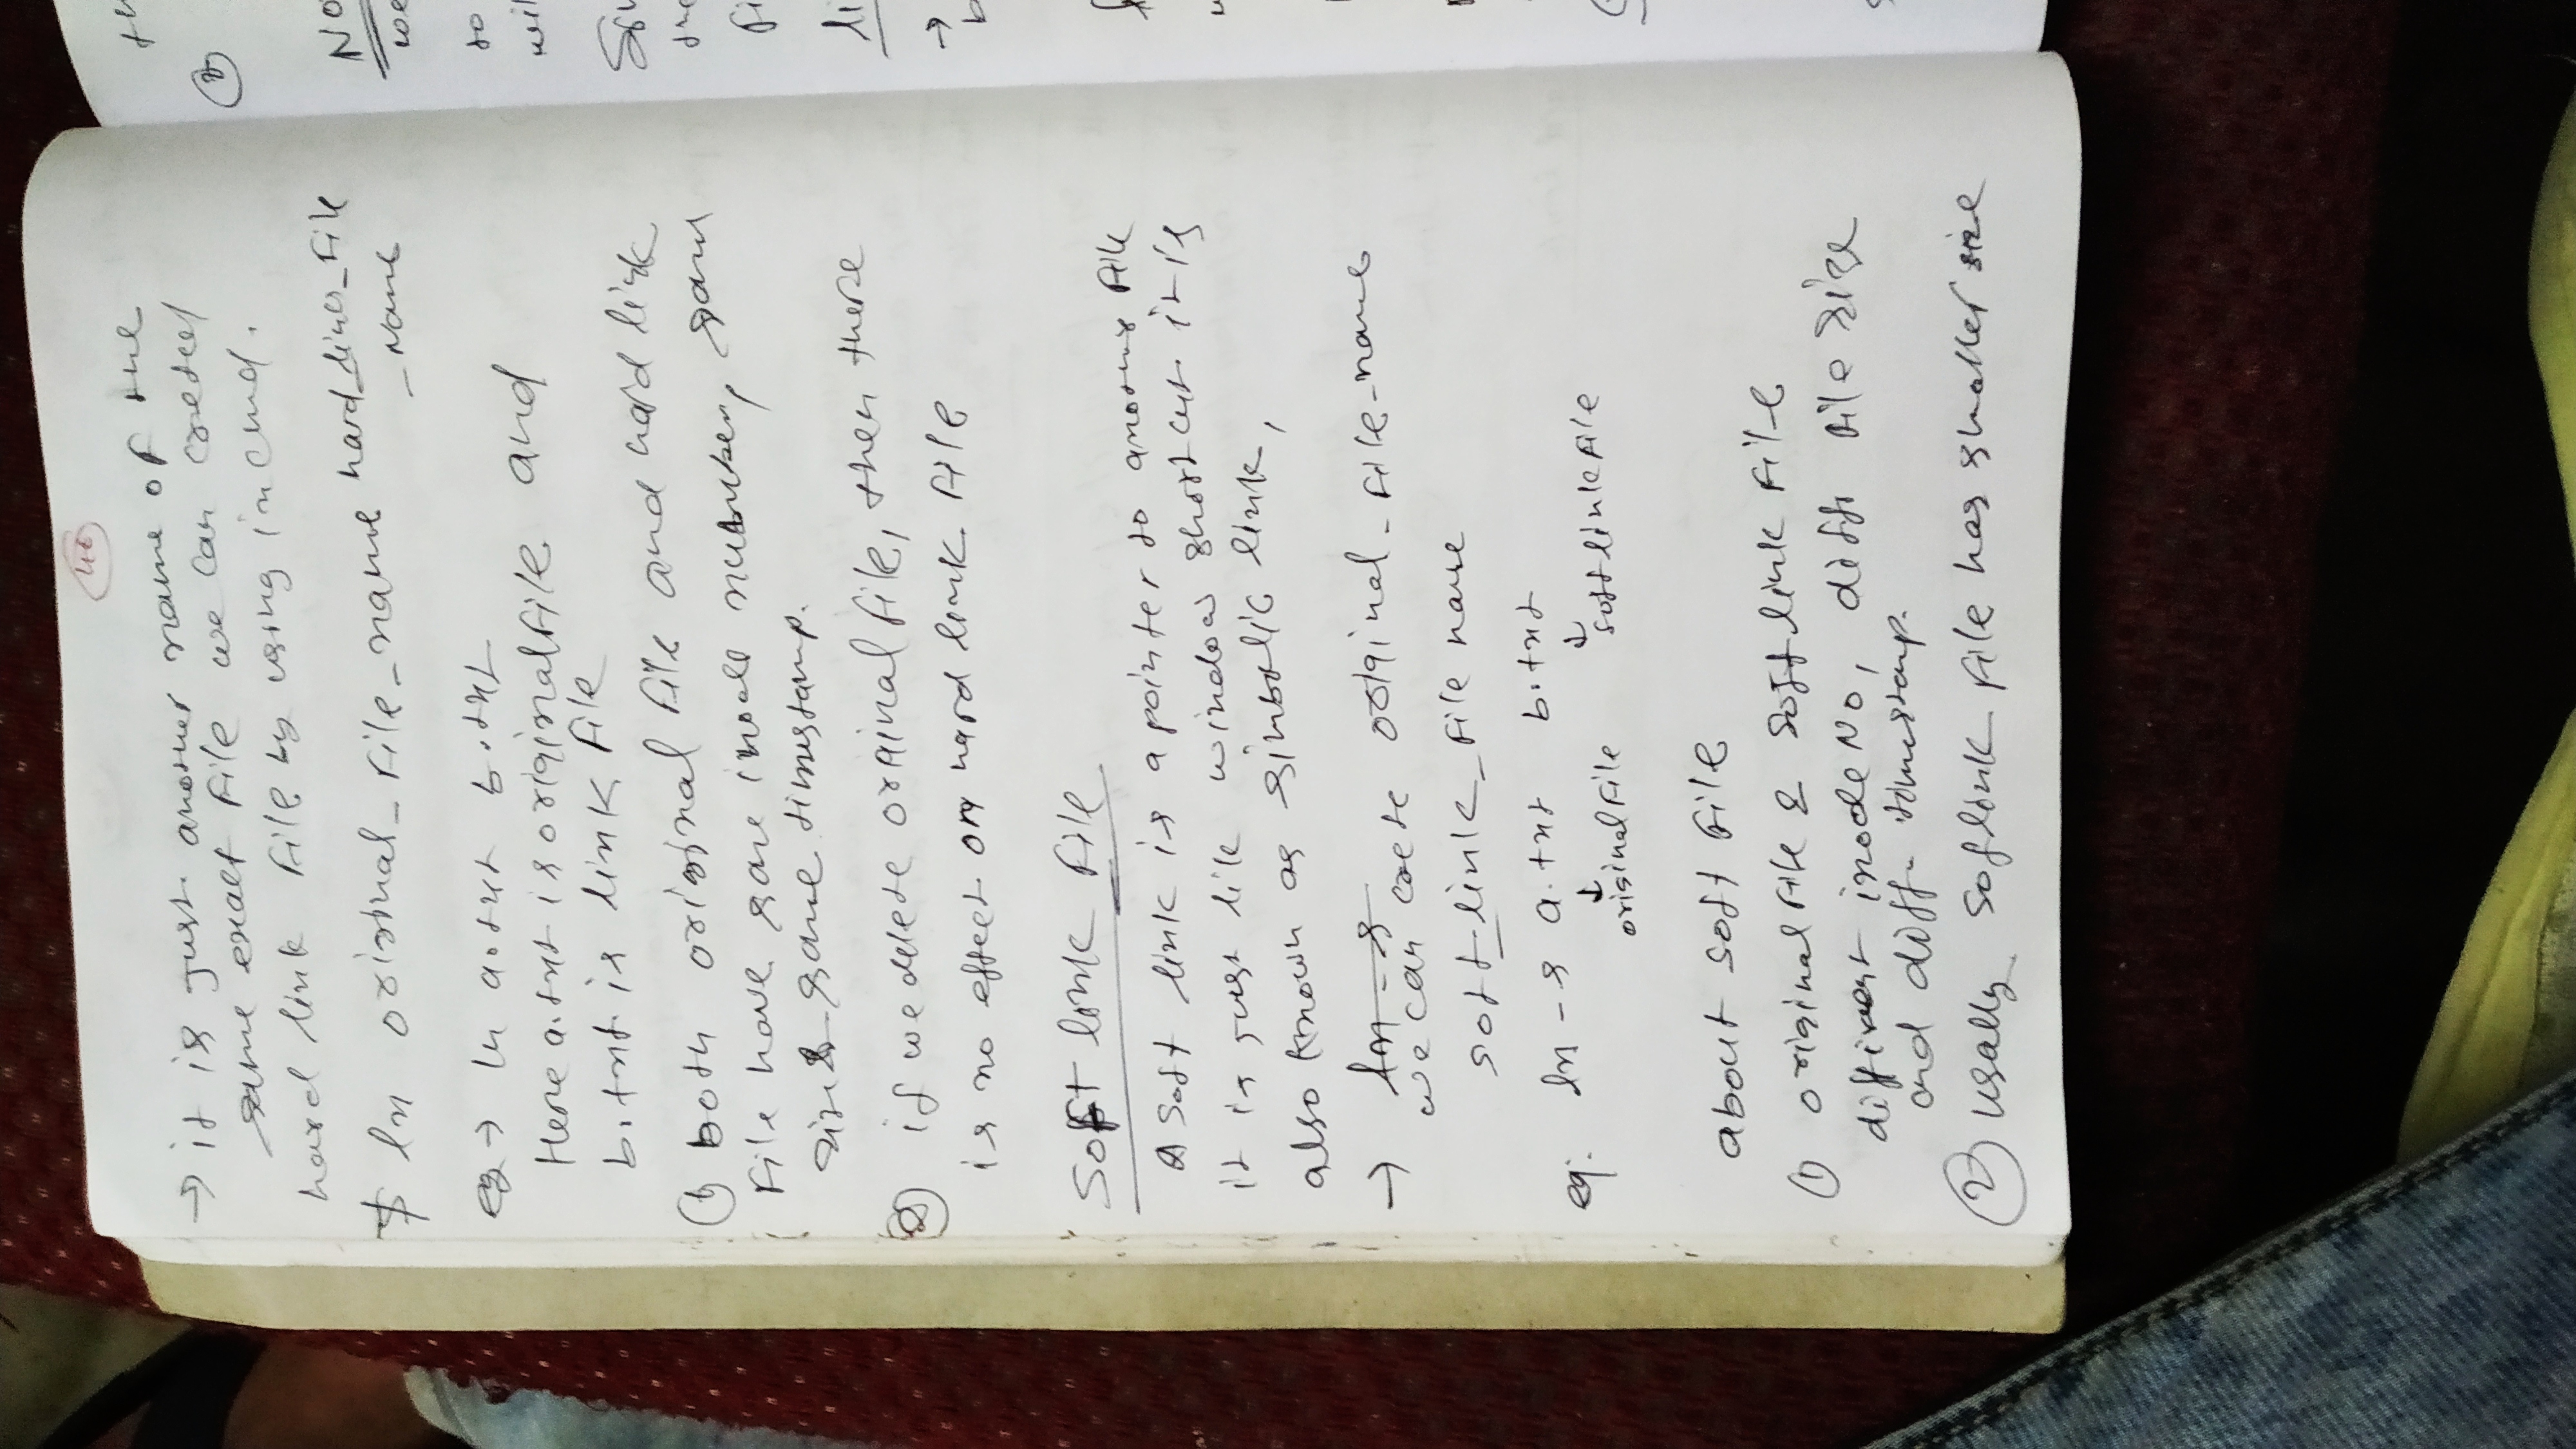 46
→ it is just another name of the
same exact file we can creted
hard link file by using in cmd.
$ ln original_file_name hard_link_file
_Name
eg → ln a.txt b.txt
Here a.txt is original file and
b.txt is link file
① both original file and hard link
file have same inode number, same
size & same timestamp.
② if we delete orginal file, then there
is no effect on hard link file
Soft link file
A soft link is a pointer to another file
it is just like window shortcut it is
also known as simbolic link,
→ ln -s
we can crete original_file_name
soft_link_file name
eg: ln -s a.txt b.txt
↓ ↓
original file soft link file
about soft file
① original file & soft link file
different inode No, diff. file size
and diff. timestamp.
② Usally soflink file has smaller size
②
NO
we
to
wil
fi
li
→
b